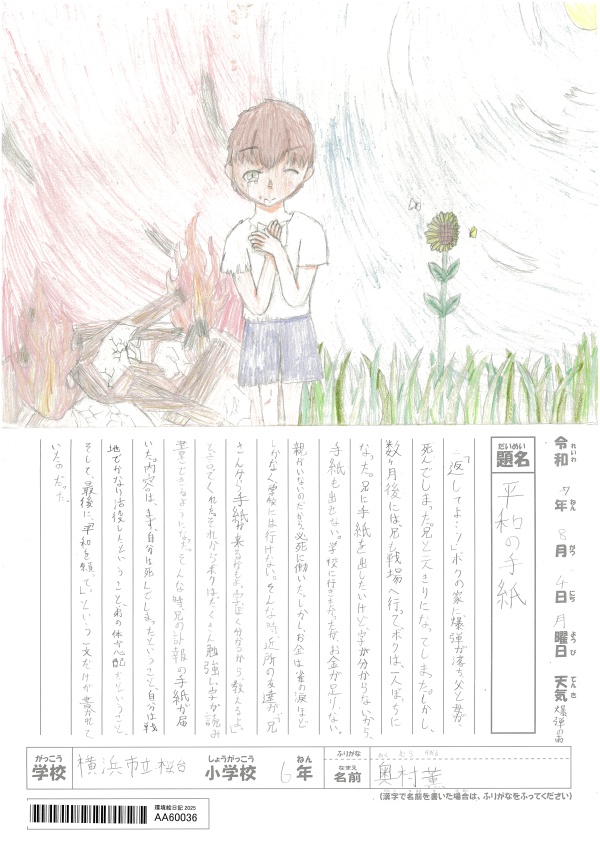 令和7年8月4日月曜日 天気 爆弾の雨
れいわ ねん がつ にち ようび てんき
だいめい
題名 平和の手紙
「返してよ…!」ボクの家に爆弾が落ち父と母が
死んでしまった。兄と二人きりになってしまった。しかし、
数ヶ月後には、兄も戦場へ行って、ボクは一人ぼっちに
なった。兄に手紙を出したいけど、字が分からないから、
手紙も出せない。学校に行きたかったが、お金が足りない。
親がいないのだから必死に働いた。しかし、お金は雀の涙ほど
しかなく学校には行けない。そんな時近所の友達が「兄
さんから手紙が来るかもよ。字よく分かるから、教えるよ」
と言ってくれた。それからボクはたくさん勉強し、字が読み
書きできるようになった。そんな時兄の訃報の手紙が届
いた。内容は、まず、自分は死んでしまったということ、自分は戦
地でかなり活役したということ、弟の体が心配だということ、
そして、最後に、「平和を願って」という一文だけが書かれて
いたのだった。
がっこう しょうがっこう ねん ふりがな
学校 横浜市立桜台 小学校 6年
なまえ
名前 奥村薫
(漢字で名前を書いた場合は、ふりがなをふってください)
環境絵日記 2025
AA60036